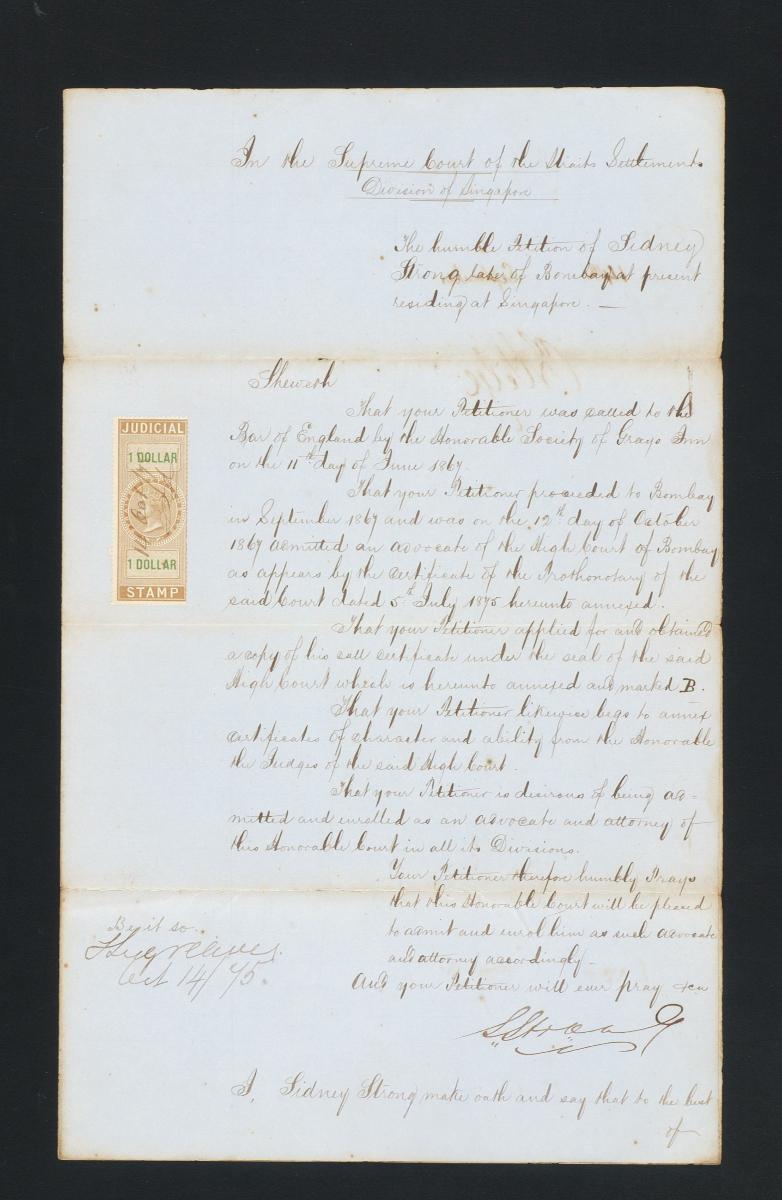 In the Supreme Court of the Straits Settlements
Division of Singapore
The humble Petition of Sidney
Strong late of Bombay at present
residing at Singapore. —
Sheweth
That your Petitioner was called to the
Bar of England by the Honorable Society of Grays Inn
on the 11th day of June 1867.
That your Petitioner proceeded to Bombay
in September 1867 and was on the 12th day of October
1867 admitted an advocate of the High Court of Bombay
as appears by the certificate of the Prothonotary of the
said Court dated 5th July 1875 hereunto annexed.
That your Petitioner applied for and obtained
a copy of his call certificate under the seal of the said
High Court which is hereunto annexed and marked B.
That your Petitioner likewise begs to annex
certificates of character and ability from the Honorable
the Judges of the said High Court.
That your Petitioner is desirous of being ad=
mitted and enrolled as an advocate and attorney of
this Honorable Court in all its Divisions.
Your Petitioner therefore humbly Prays
that this Honorable Court will be pleased
to admit and enrol him as such advocate
and attorney accordingly —
And your Petitioner will ever pray &ca
S Strong
I, Sidney Strong make oath and say that to the best
of
JUDICIAL
1 DOLLAR
1 DOLLAR
STAMP
Be it so.
Oct 14/75.